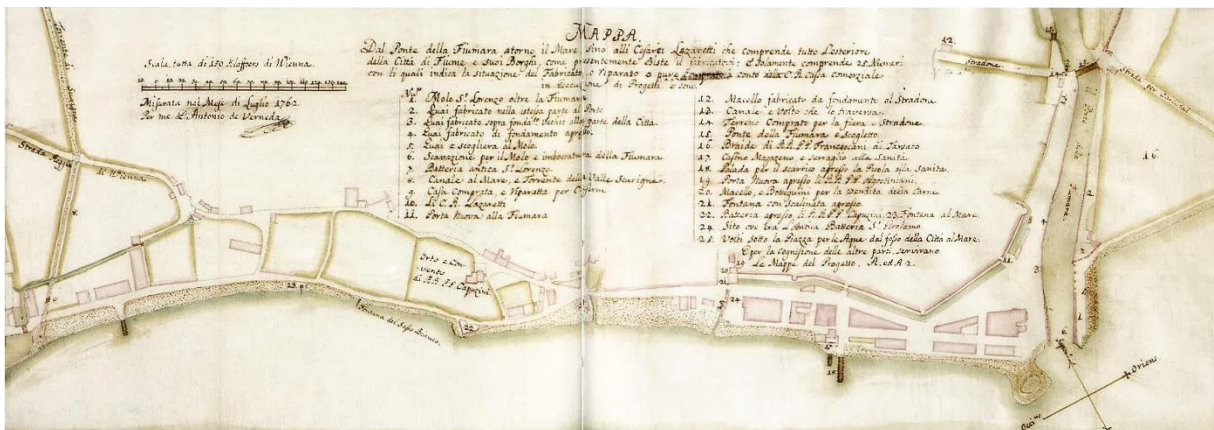 MAPPA.
Dal Ponte della Fiumara atorno il Mare sino alli Cesarei Lazaretti che comprende tutto L'esteriore
della Città di Fiume e suoi Borghi, come presentemente
con li quali indica la Situazione del Fabricato, o riparato o pure Comprato a conto della C. R. Cassa comerziale
in di Progetti e sono.
Scala, tutta di 150 Klafters di Wienna
Misurata nel Mese di Luglio 1762.
Per me Antonio de Verneda
1. Molo Sn. Lorenzo oltre la Fiumara
2. Quai fabricato nella istessa parte al Ponte
3. Quai fabricato sopra fondta. Vechio alla parte della Città.
4. Quai fabricato di fondamento apresso.
5. Quai e Scogliera al Molo.
6. Scavazione per il Molo e imboccatura della Fiumara
7. Batteria antica Sn. Lorenzo.
8. Canale al Mare, e Torrente della Valle Scurigne.
9. Casa Comprata, e riparatta per
10. Li C. R. Lazaretti
11. Porta Nuova alla Fiumara
12. Macello fabricato da fondamento al Stradone.
13. Canale, e Volto che lo traversa.
14. Terreno Comprato per la fiera e Stradone.
15. Ponte della Fiumara e Scogletto.
16. Braide di R.R. P.P. Francescani di Tarsaco
17. Casino Magazeno e Serraglio alla Sanità.
18. Palada per il Scarrico apresso la alla Sanità.
19. Porta Nuova apresso li R.R. P.P. Agostiniani.
20. Macello, e Botteguini per la Vendita della Carne.
21. Fontana con Scalinata apresso.
22. Batteria apresso li P. R. P. P. Capucini. 23. Fontana al Mare.
24. Sito ove era l'Antica Batteria Sn. Girolamo
25. Volti Sotto la Piazza per le Aque dal fosso della Città al Mare.
E per la cognizione delle altre parti, serviranno
Le Mappe del Progetto. A. ed A. 2.
Stradone
12.
16.
Strada Regia
di Wienna
Orto e Con-
vento
di R.R. P.P. Capucini
23
Fontana del Sasso Bianco.
22
19
20
21
24
17
18
11
3
Fiumara
Oriens